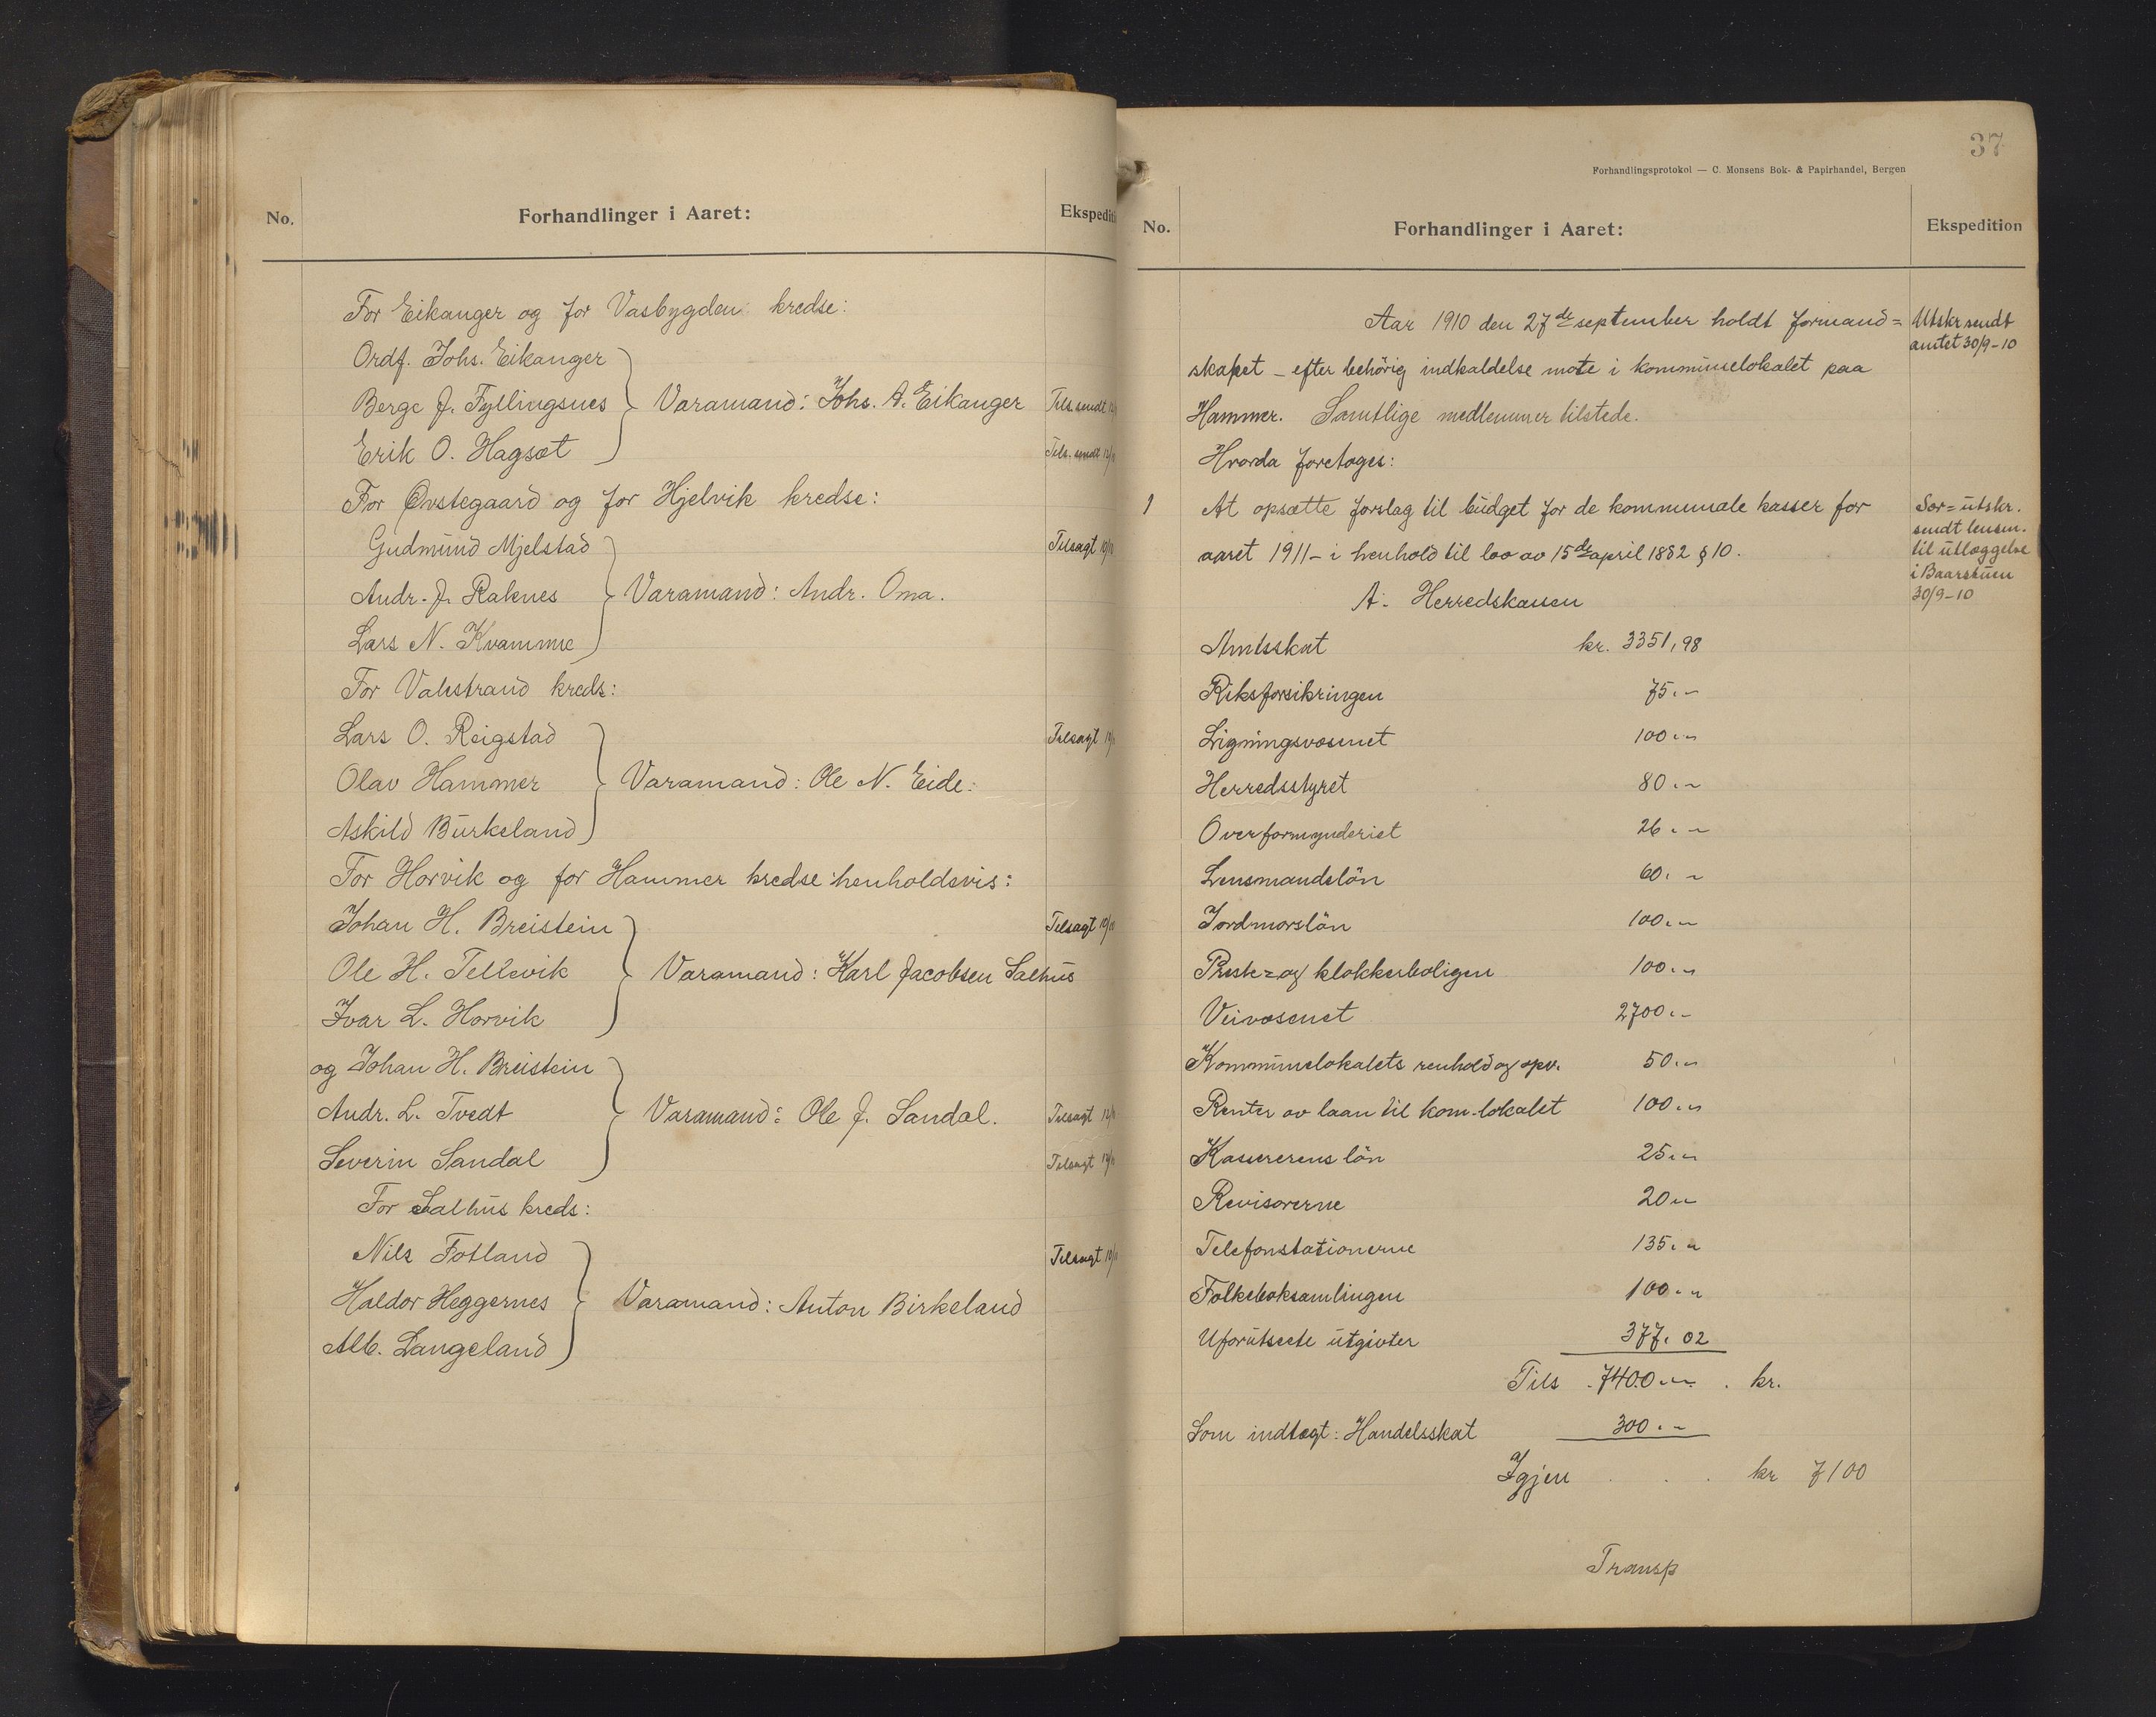 No.
Forhandlinger i Aaret:
For Eikanger og for Vasbygden kredse:
Ordf. Johs. Eikanger
Berge J. Fyllingsnes } Varamand: Johs. A. Eikanger Tils. sendt
Erik O. Hagsæt Tils. sendt
For Øvstegaard og for Hjelvik kredse:
Gudmund Mjelstad Tilsagt
Andr. J. Raknes } Varamand: Andr. Oma.
Lars N. Kvamme
For Valestrand kreds:
Lars O. Reigstad Tilsagt
Olav Hammer } Varamand: Ole N. Eide.
Askild Burkeland
For Horvik og for Hammer kredse henholdsvis:
Johan H. Breistein Tilsagt
Ole H. Tellevik } Varamand: Karl Jacobsen Salhus
Ivar L. Horvik
og Johan H. Breistein
Andr. L. Tvedt } Varamand: Ole J. Sandal. Tilsagt
Severin Sandal Tilsagt
For Salhus kreds:
Nils Fotland Tilsagt
Haldor Heggernes } Varamand: Anton Birkeland
Alb. Langeland
37
Forhandlingsprotokol — C. Monsens Bok- & Papirhandel, Bergen
No. Forhandlinger i Aaret: Ekspedition
Aar 1910 den 27de september holdt formand=
skapet – efter behörig indkaldelse møte i kommunelokalet paa
Hammer. Samtlige medlemmer tilstede.
Utskr sendt
amtet 30/9-10
Hvorda foretoges:
1 At opsætte forslag til budget for de kommunale kasser for
aaret 1911 – i henhold til lov av 15de april 1882 § 10.
Sær=utskr.
sendt lensm.
til utlæggelse
i Baarstun
30/9-10
A. Herredskassen
Amtsskat kr. 3351,98
Riksforsikringen 75.–
Ligningsvæsenet 100.–
Herredsstyret 80.–
Overformynderiet 26.–
Lensmandslön 60.–
Jordmorslön 100.–
Preste= og klokkerboligen 100.–
Veivæsenet 2700.–
Kommunelokalets renhold og opv. 50.–
Renter av laan til kom-lokalet 100.–
Kassererens lön 25.–
Revisorerne 20.–
Telefonstationerne 135.–
Folkeboksamlingen 100.–
Uforutseete utgivter 377.02
Tils . 7400.– . kr.
Som indtægt: Handelsskat 300.–
Igjen . . . kr 7100
Transp